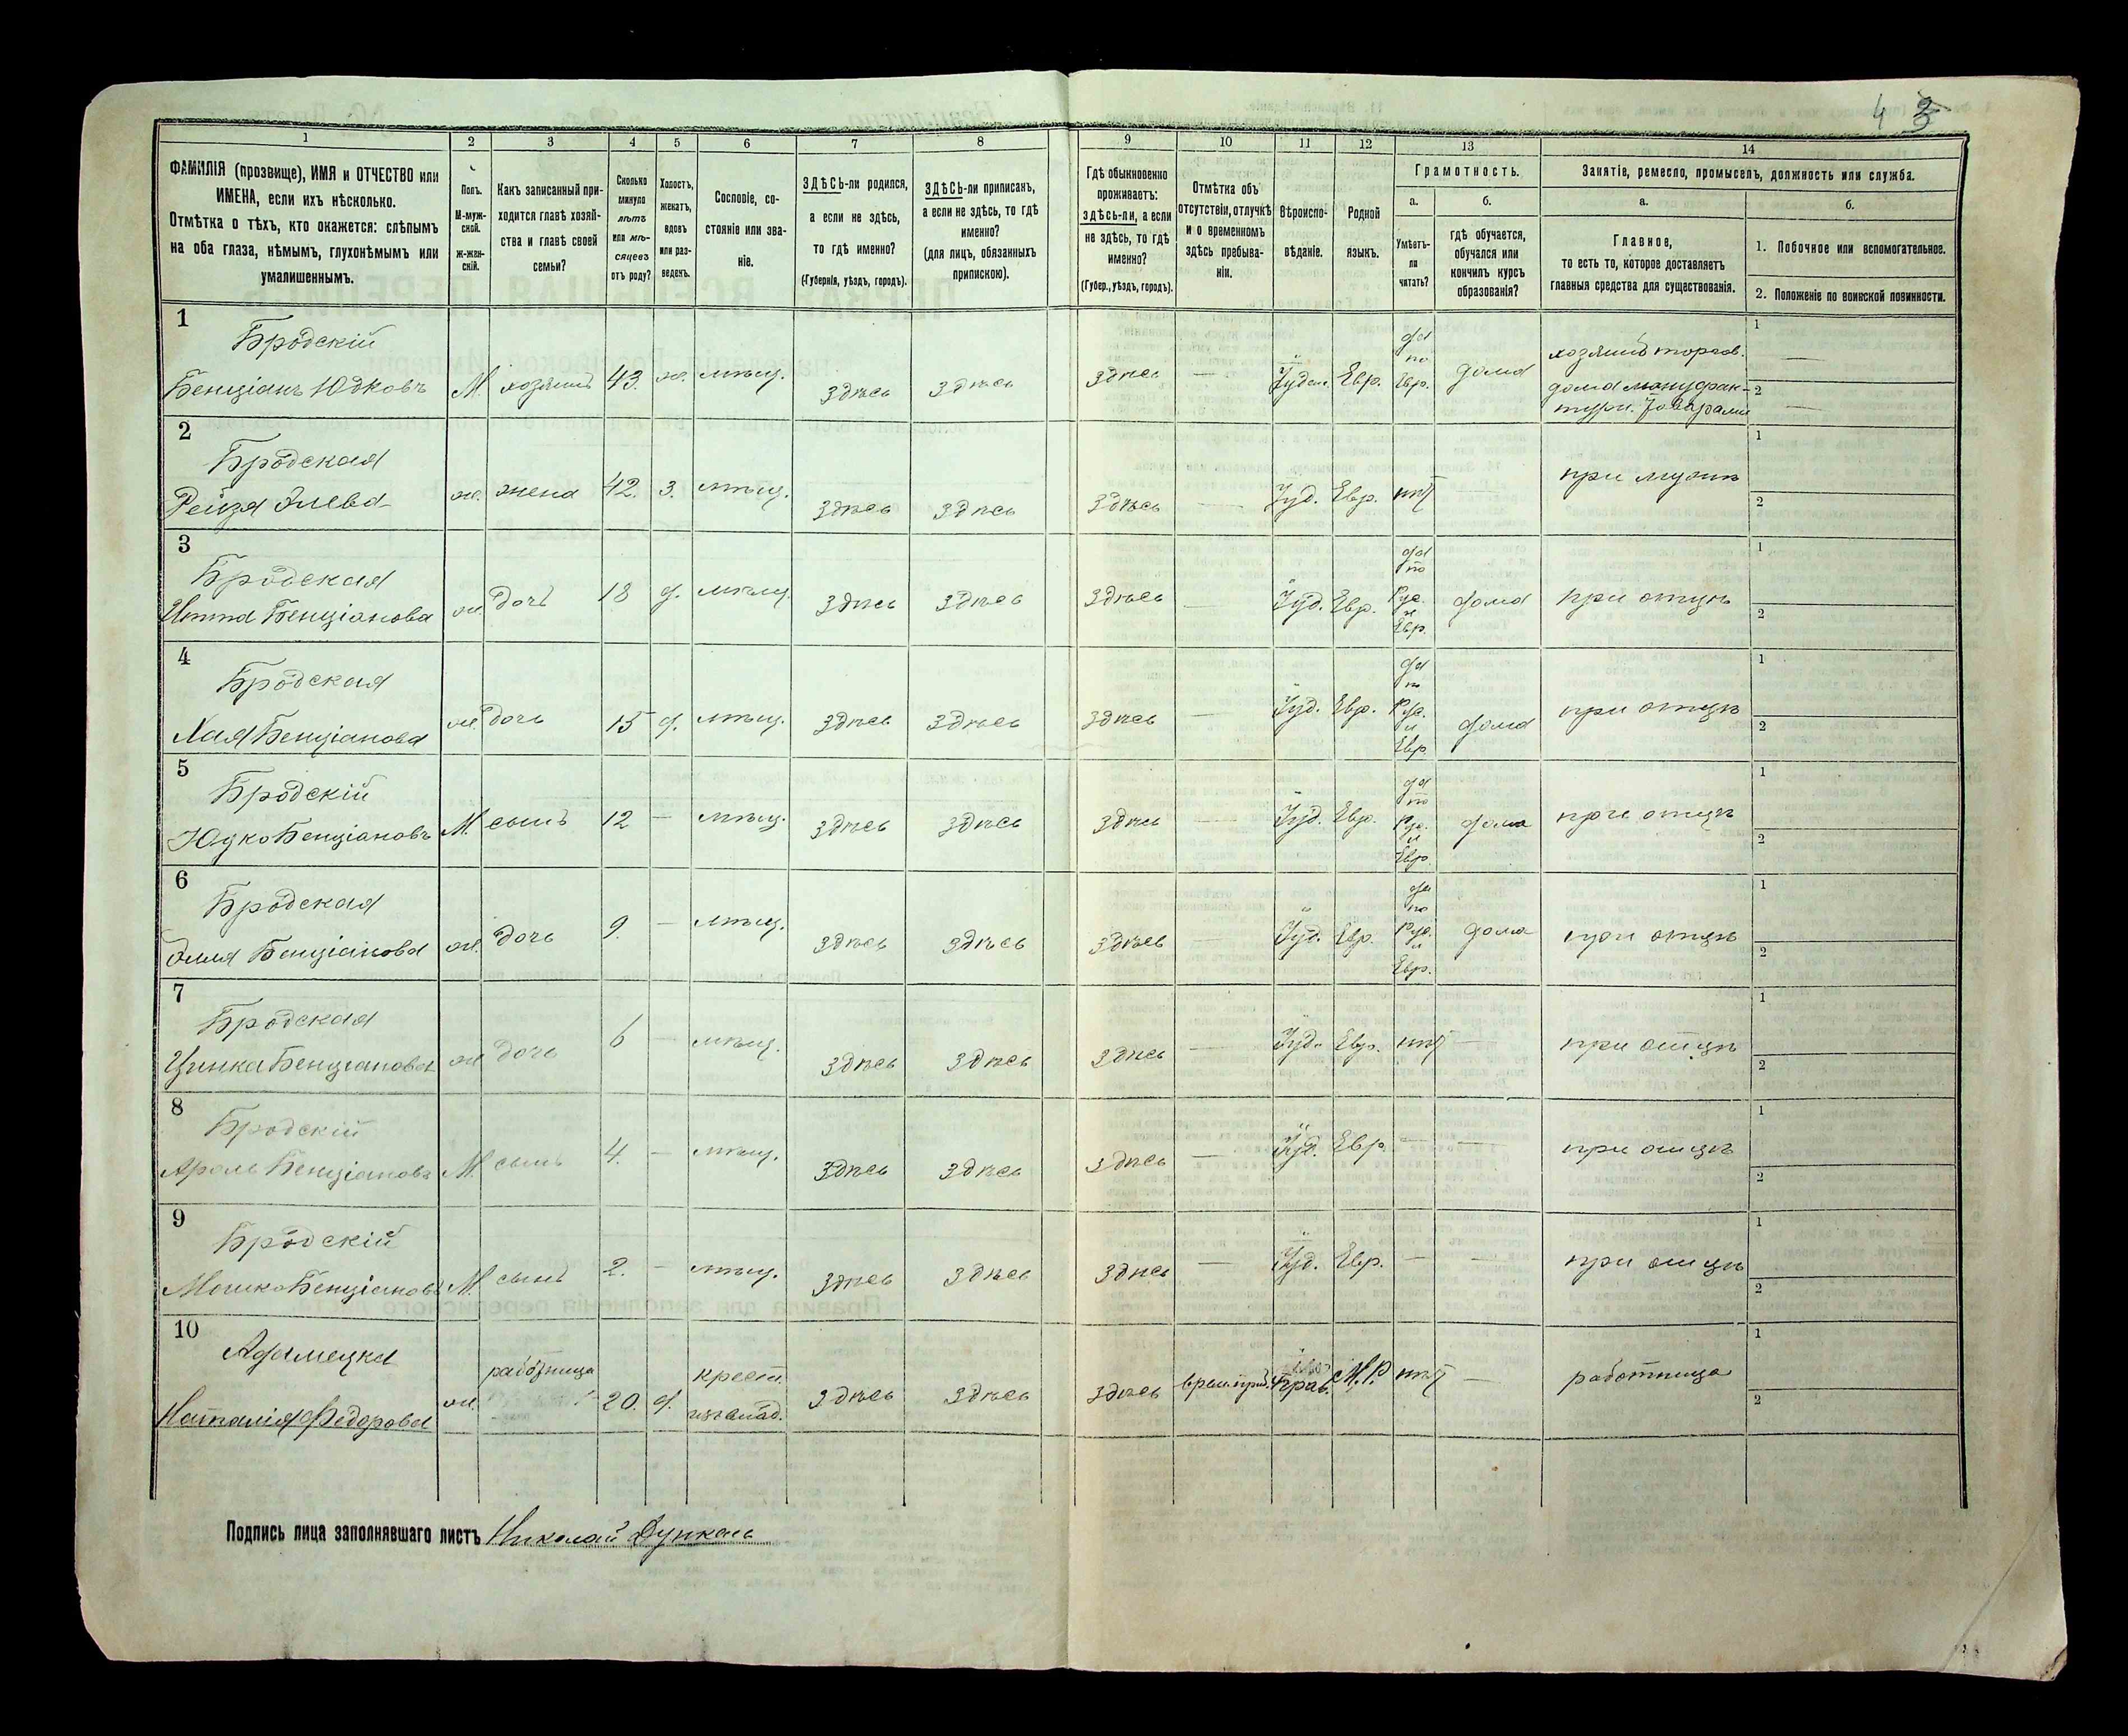 4 3
1 2 3 4 5 6 7 8 9 10 11 12 13 14
ФАМИЛІЯ (прозвище), ИМЯ и ОТЧЕСТВО или
ИМЕНА, если ихъ нѣсколько.
Отмѣтка о тѣхъ, кто окажется: слѣпымъ
на оба глаза, нѣмымъ, глухонѣмымъ или
умалишеннымъ.
Полъ.
М-муж-
ской.
Ж-жен-
скій.
Какъ записанный при-
ходится главѣ хозяй-
ства и главѣ своей
семьи?
Сколько
минуло
лѣтъ
или мѣ-
сяцевъ
отъ роду?
Холостъ,
женатъ,
вдовъ
или раз-
веденъ.
Сословіе, со-
стояніе или зва-
ніе.
ЗДѢСЬ-ли родился,
а если не здѣсь,
то гдѣ именно?
(Губернія, уѣздъ, городъ).
ЗДѢСЬ-ли приписанъ,
а если не здѣсь, то гдѣ
именно?
(для лицъ, обязанныхъ
припискою).
Гдѣ обыкновенно
проживаетъ:
здѣсь-ли, а если
не здѣсь, то гдѣ
именно?
(Губер., уѣздъ, городъ).
Отмѣтка объ
отсутствіи, отлучкѣ
и о временномъ
здѣсь пребыва-
ніи.
Вѣроиспо-
вѣданіе.
Родной
языкъ.
Грамотность.
а.
Умѣетъ-
ли
читать?
б.
гдѣ обучается,
обучался или
кончилъ курсъ
образованія?
Занятіе, ремесло, промыселъ, должность или служба.
а.
Главное,
то есть то, которое доставляетъ
главныя средства для существованія.
б.
1. Побочное или вспомогательное.
2. Положеніе по воинской повинности.
1
Бродскій
Бенціанъ Юдковъ М. хозяинъ 43. ж. мѣщ. здѣсь здѣсь здѣсь — Іуд. Евр. да по Евр. дома
хозяинъ торгов.
дома мануфак-
турн. товарами
1 —
2 —
2
Бродская
Рейза ж. жена 42. з. мѣщ. здѣсь здѣсь здѣсь — Іуд. Евр. нѣтъ — при мужѣ
1
2
3
Бродская
Итта Бенціанова ж. дочь 18 д. мѣщ. здѣсь здѣсь здѣсь — Іуд. Евр. да по Рус. и Евр. дома при отцѣ
1
2
4
Бродская
Хая Бенціанова ж. дочь 15 д. мѣщ. здѣсь здѣсь здѣсь — Іуд. Евр. да по Рус. и Евр. дома при отцѣ
1
2
5
Бродскій
Юдко Бенціановъ М. сынъ 12 — мѣщ. здѣсь здѣсь здѣсь — Іуд. Евр. да по Рус. и Евр. дома при отцѣ
1
2
6
Бродская
Эмля Бенціанова ж. дочь 9. — мѣщ. здѣсь здѣсь здѣсь — Іуд. Евр. да по Рус. и Евр. дома при отцѣ
1
2
7
Бродская
Цинка Бенціанова ж. дочь 6 — мѣщ. здѣсь здѣсь здѣсь — Іуд. Евр. нѣтъ — при отцѣ
1
2
8
Бродскій
Аронъ Бенціановъ М. сынъ 4. — мѣщ. здѣсь здѣсь здѣсь — Іуд. Евр. — — при отцѣ
1
2
9
Бродскій
Мошко Бенціановъ М. сынъ 2. — мѣщ. здѣсь здѣсь здѣсь — Іуд. Евр. — — при отцѣ
1
2
10
Адамецка
Наталія Федорова ж. работница 20. д. крест. здѣсь здѣсь здѣсь Прав. М.Р. нѣтъ — работница
1
2
Подпись лица заполнявшаго листъ Николай